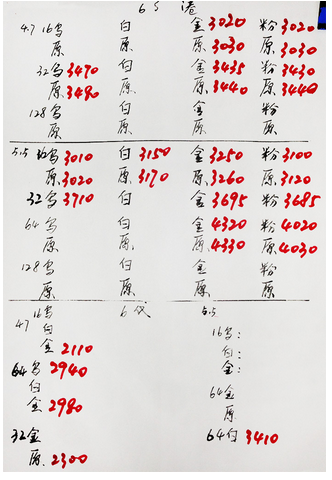 6S 港
4.7 16乌 白 金3020 粉3020
原 原 原.3030 原.3030
32乌3470 白 金3435 粉3430
原.3480 原 原3440 原.3440
128乌 白 金 粉
原 原 原 原
5.5 16乌3010 白3150 金3250 粉3100
原3020 原.3170 原.3260 原.3120
32乌3710 白 金3695 粉3685
64乌 白 金4320 粉4020
原 原 原4330 原4030
128乌 白 金 粉
原 原 原 原
4.7 16乌 6 5.5
白
金2110
64乌2940
白
金2980
32金
原.2300
16乌:
白:
金:
64金
原
64白3410